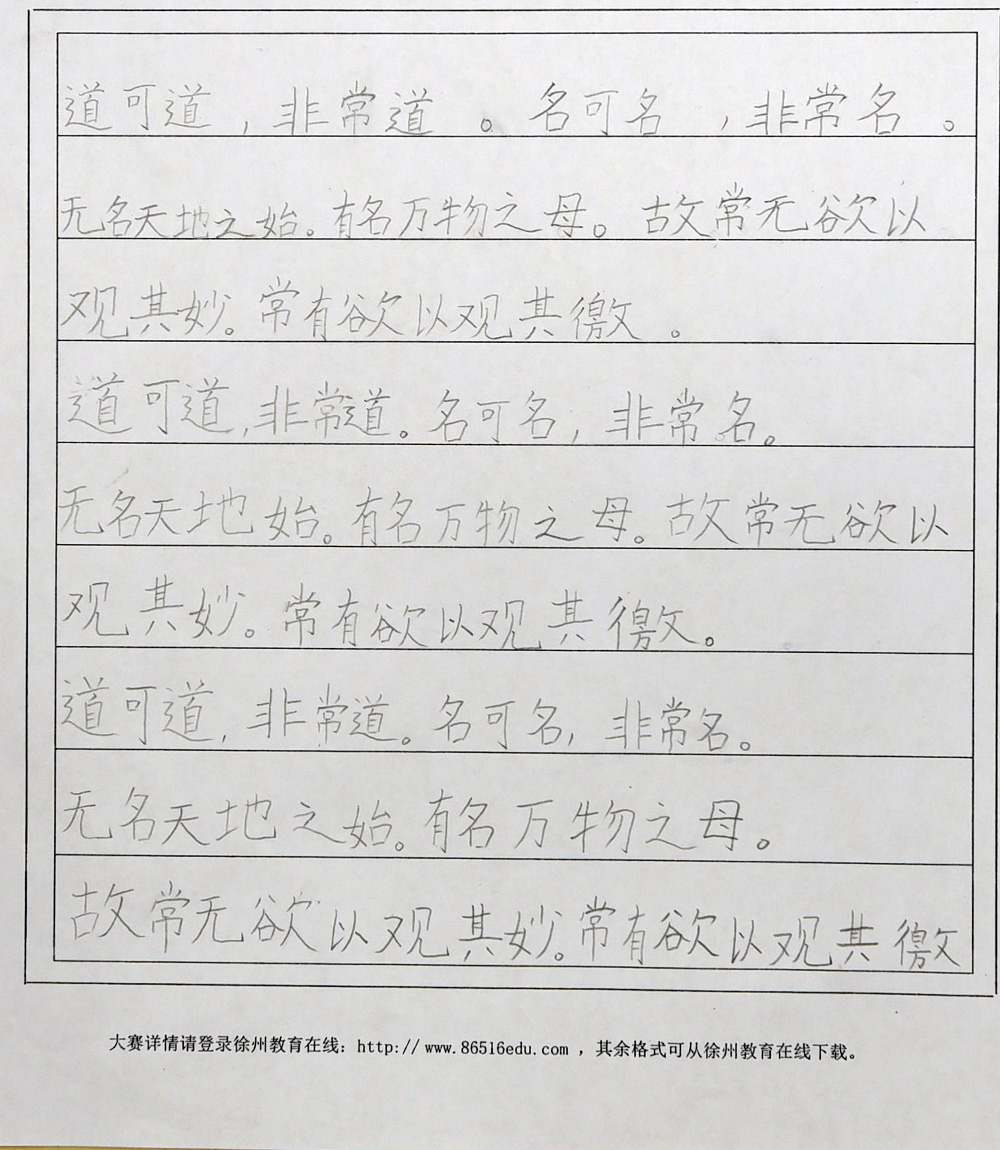 道可道，非常道。名可名，非常名。
无名天地之始。有名万物之母。故常无欲以
观其妙。常有欲以观其徼。
道可道，非常道。名可名，非常名。
无名天地始。有名万物之母。故常无欲以
观其妙。常有欲以观其徼。
道可道，非常道。名可名，非常名。
无名天地之始。有名万物之母。
故常无欲以观其妙。常有欲以观其徼
大赛详情请登录徐州教育在线：http://www.86516edu.com，其余格式可从徐州教育在线下载。